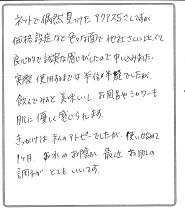 ネットで偶然見つけたアクアス5さんですが
価格設定など色々な面で他社さんに比べて
良心的で誠実な感じがしたので申し込みました。
実際使用するまでは半信半疑でしたが、
飲んでみると美味しいし、お風呂やシャワーも
肌に優しく感じられます。
きっかけは私のアトピーでしたが、使い始めて
1ヶ月。お水のお陰か最近お肌の
調子がとてもいいです。